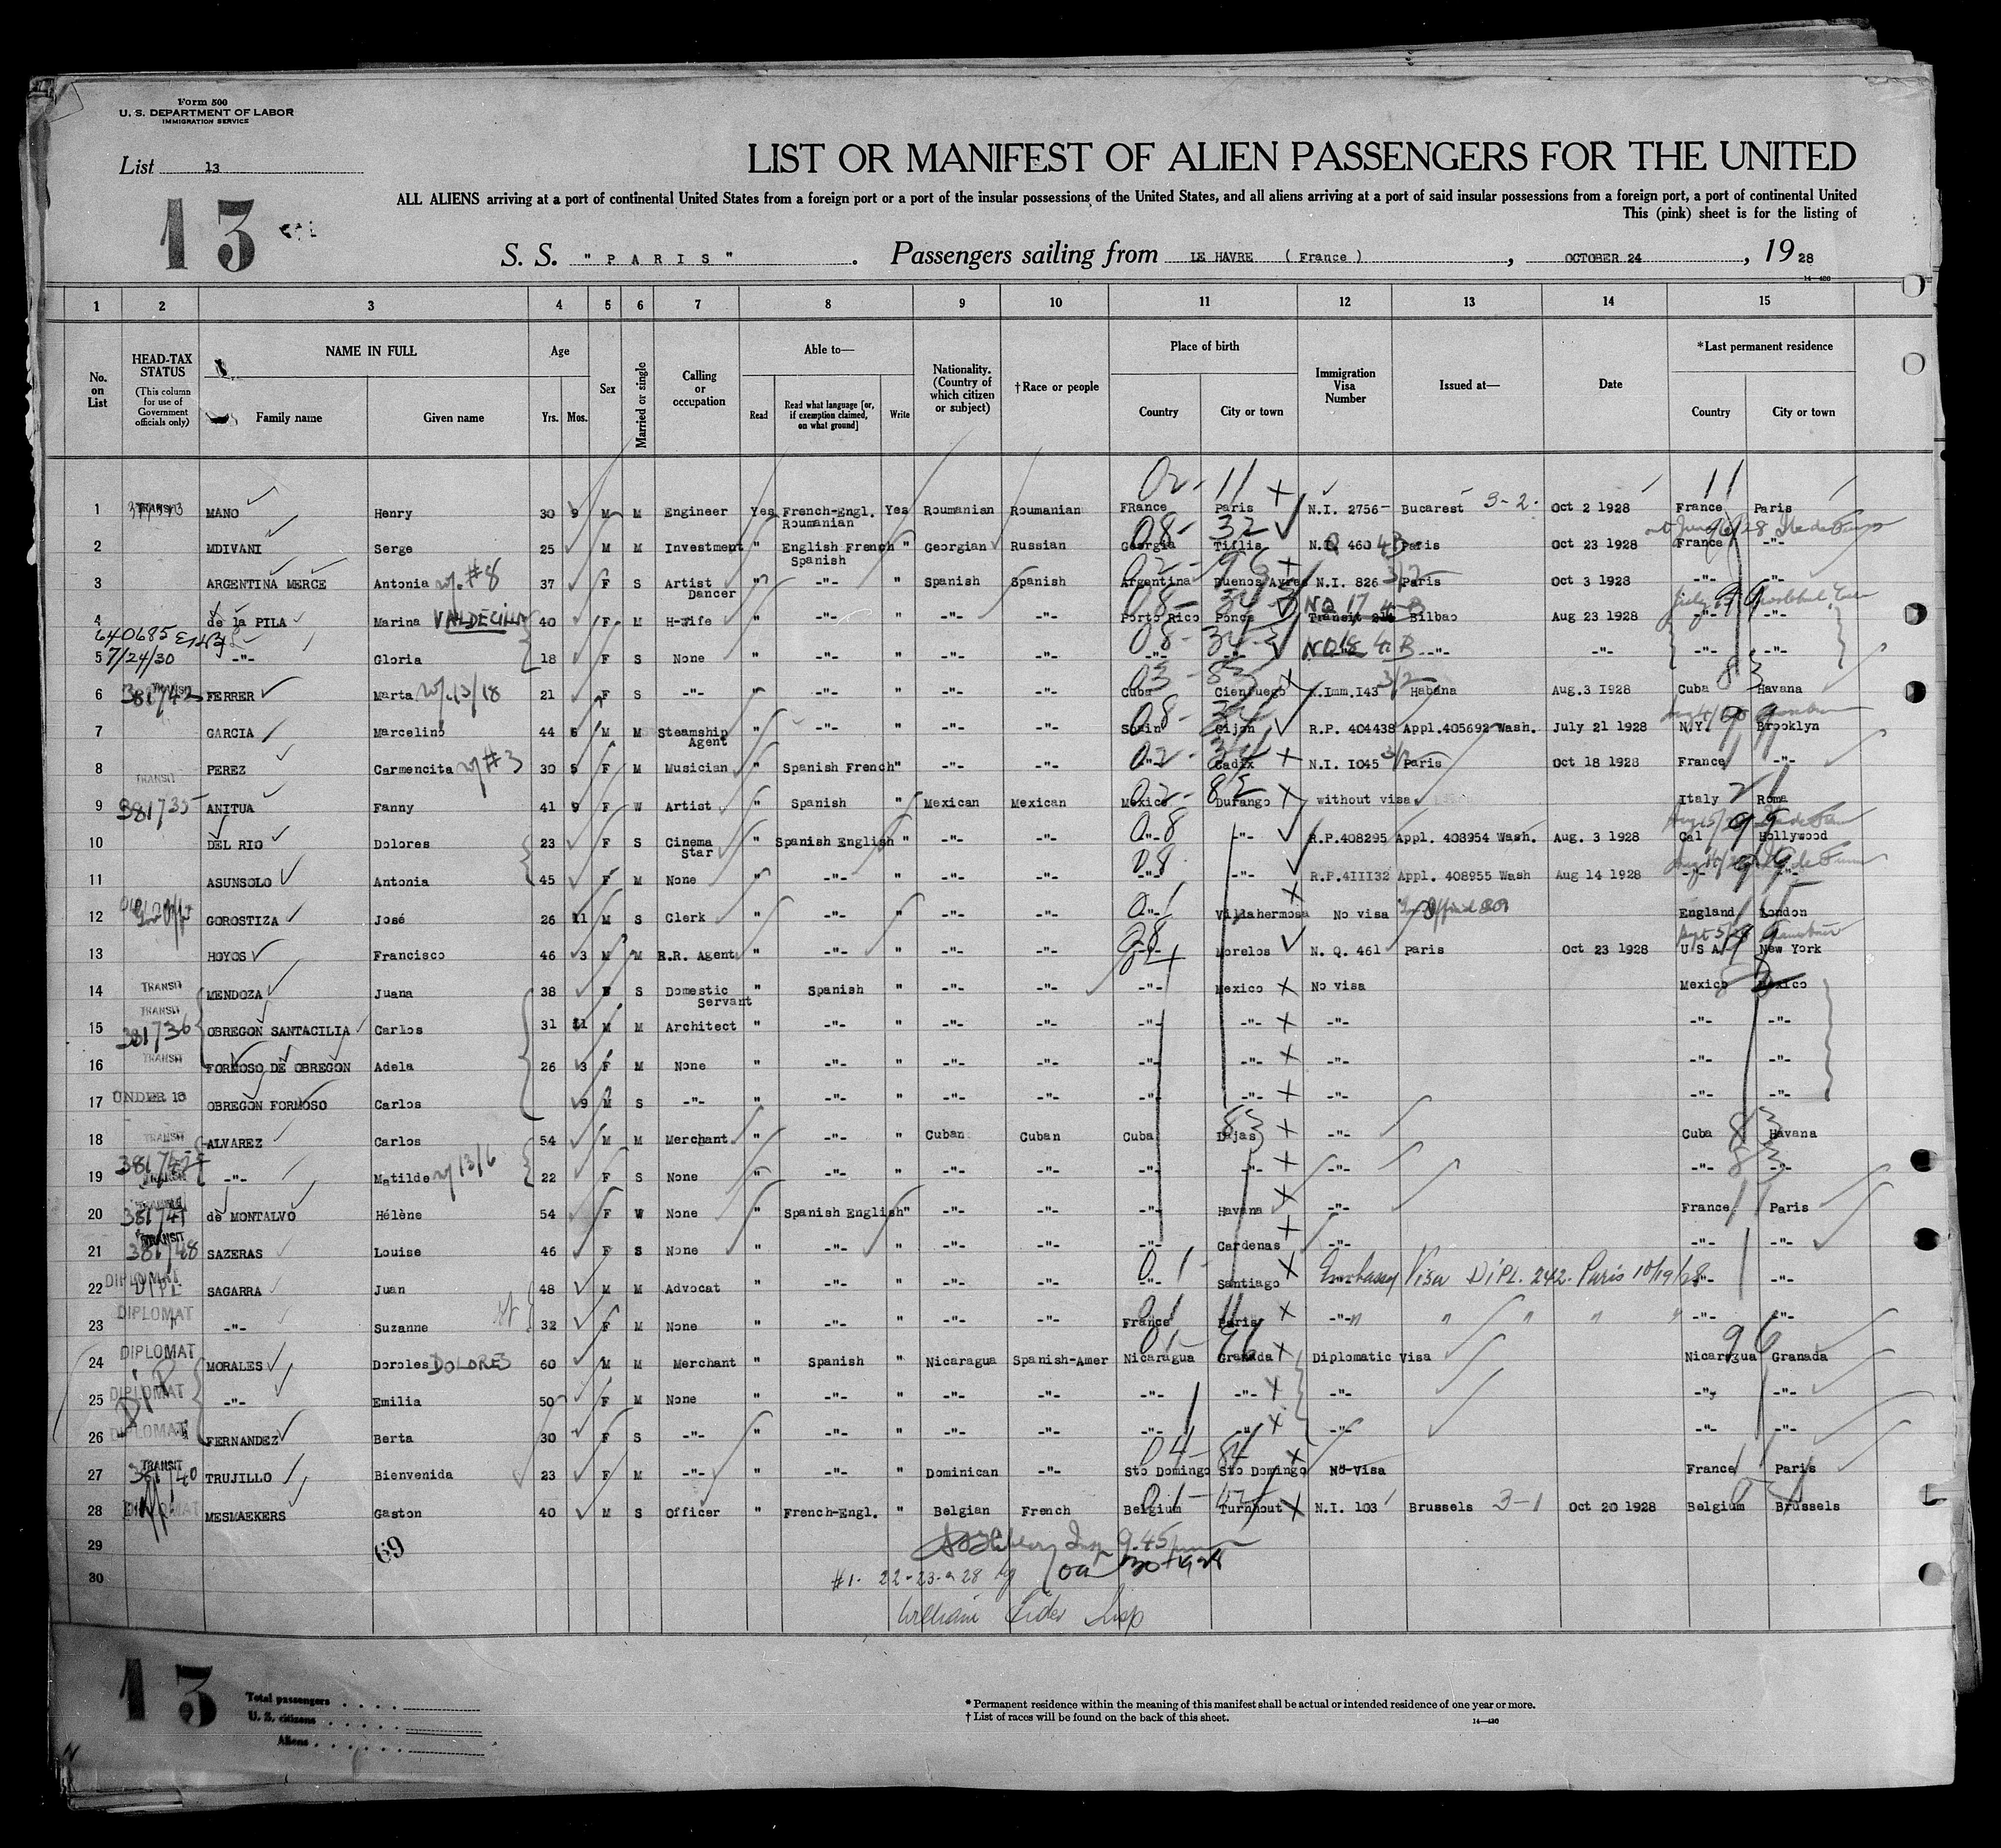 Form 500
U. S. DEPARTMENT OF LABOR
IMMIGRATION SERVICE
List 13
LIST OR MANIFEST OF ALIEN PASSENGERS FOR THE UNITED
ALL ALIENS arriving at a port of continental United States from a foreign port or a port of the insular possessions of the United States, and all aliens arriving at a port of said insular possessions from a foreign port, a port of continental United
This (pink) sheet is for the listing of
13
S. S. " P A R I S " . Passengers sailing from LE HAVRE ( France ) , OCTOBER 24 , 19 28
14—420
1 2 3 4 5 6 7 8 9 10 11 12 13 14 15
No. on List
HEAD-TAX STATUS (This column for use of Government officials only)
NAME IN FULL
Family name Given name
Age
Yrs. Mos.
Sex
Married or single
Calling or occupation
Able to—
Read Read what language [or, if exemption claimed, on what ground] Write
Nationality. (Country of which citizen or subject)
† Race or people
Place of birth
Country City or town
Immigration Visa Number
Issued at—
Date
*Last permanent residence
Country City or town
02- 11 X 11
1 TRANSIT MANO Henry 30 9 M M Engineer Yes French-Engl. Roumanian Yes Roumanian Roumanian FRance Paris N.I. 2756- Bucarest 3-2. Oct 2 1928 France Paris
08- 32
2 MDIVANI Serge 25 M M Investment " English French Spanish " Georgian Russian Georgia Tiflis N.Q 460 Paris Oct 23 1928 France -"-
3 ARGENTINA MERCE Antonia w. #8 37 F S Artist Dancer " -"- " Spanish Spanish Argentina Buenos Ayres N.I. 826 3/2 Paris Oct 3 1928 -"- -"-
4 de la PILA Marina VALDECILLA 40 F M H-Wife " -"- " -"- -"- Porto Rico Ponce NQ 17 Transit Bilbao Aug 23 1928 -"- -"-
640685
5 7/24/30 -"- Gloria 18 F S None " -"- " -"- -"- -"- -"- NQ 18 -"- -"- -"- -"-
6 TRANSIT 381742 FERRER Marta w. 13/18 21 F S -"- " -"- " -"- -"- Cuba Cienfuego N.Imm.I43 3/2 Habana Aug.3 I928 Cuba Havana
7 GARCIA Marcelino 44 6 M M Steamship Agent " -"- " -"- -"- Spain Gijon R.P. 404438 Appl.405692 Wash. July 21 1928 N.Y. Brooklyn
8 PEREZ Carmencita w #3 30 5 F M Musician " Spanish French " -"- -"- -"- Cadix N.I. I045 Paris Oct 18 1928 France -"-
9 TRANSIT 381735 ANITUA Fanny 41 9 F W Artist " Spanish " Mexican Mexican Mexico Durango without visa. Italy Roma
10 DEL RIO Dolores 23 F S Cinema Star " Spanish English " -"- -"- -"- -"- R.P.408295 Appl. 408954 Wash. Aug. 3 1928 Cal Hollywood
11 ASUNSOLO Antonia 45 F M None " -"- " -"- -"- -"- -"- R.P.4III32 Appl. 408955 Wash Aug 14 1928 -"- -"-
12 GOROSTIZA José 26 11 M S Clerk " -"- " -"- -"- -"- Villahermosa No visa England London
13 HOYOS Francisco 46 3 M M R.R. Agent " -"- " -"- -"- -"- Morelos N. Q. 461 Paris Oct 23 1928 U S A New York
14 TRANSIT MENDOZA Juana 38 S Domestic Servant " Spanish " -"- -"- -"- Mexico No visa Mexico Mexico
15 TRANSIT 381736 OBREGON SANTACILIA Carlos 31 11 M M Architect " -"- " -"- -"- -"- -"- -"- -"- -"-
16 TRANSIT FORMOSO DE OBREGON Adela 26 3 F M None " -"- " -"- -"- -"- -"- -"- -"- -"-
17 UNDER 16 OBREGON FORMOSO Carlos 9 M S -"- " -"- " -"- -"- -"- -"- -"- -"- -"-
18 TRANSIT ALVAREZ Carlos 54 M M Merchant " -"- " Cuban Cuban Cuba Lajas -"- Cuba Havana
19 TRANSIT -"- Matilde w 13/6 22 F S None " -"- " -"- -"- -"- -"- -"- -"- -"-
20 381741 de MONTALVO Hélène 54 F W None " Spanish English " -"- -"- -"- Havana -"- France Paris
21 TRANSIT 381748 SAZERAS Louise 46 F S None " -"- " -"- -"- -"- Cardenas -"- -"- -"-
22 DIPLOMAT DIPL SAGARRA Juan 48 M M Advocat " -"- " -"- -"- -"- Santiago Embassy Visa DIPL. 242. Paris 10/19/28 -"- -"-
23 DIPLOMAT -"- Suzanne 32 F M None " -"- " -"- -"- France Paris -"- " " " " -"- -"-
24 DIPLOMAT MORALES Doroles DOLORES 60 M M Merchant " Spanish " Nicaragua Spanish-Amer Nicaragua Granada Diplomatic Visa Nicaragua Granada
25 DIPLOMAT -"- Emilia 50 F M None " -"- " -"- -"- -"- -"- -"- -"- -"-
26 DIPLOMAT FERNANDEZ Berta 30 F S -"- " -"- " -"- -"- -"- -"- -"- -"- -"-
27 TRANSIT TRUJILLO Bienvenida 23 F M -"- " -"- " Dominican -"- Sto Domingo Sto Domingo No-Visa France Paris
28 DIPLOMAT MESMAEKERS Gaston 40 M S Officer " French-Engl. " Belgian French Belgium Turnhout N.I. 103 Brussels 3-1 Oct 20 1928 Belgium Brussels
29 69 Insp 9.45
30 #1. 22-23-a 28
William Insp
13
Total passengers
U. S. citizens
Aliens
* Permanent residence within the meaning of this manifest shall be actual or intended residence of one year or more.
† List of races will be found on the back of this sheet.
14—420